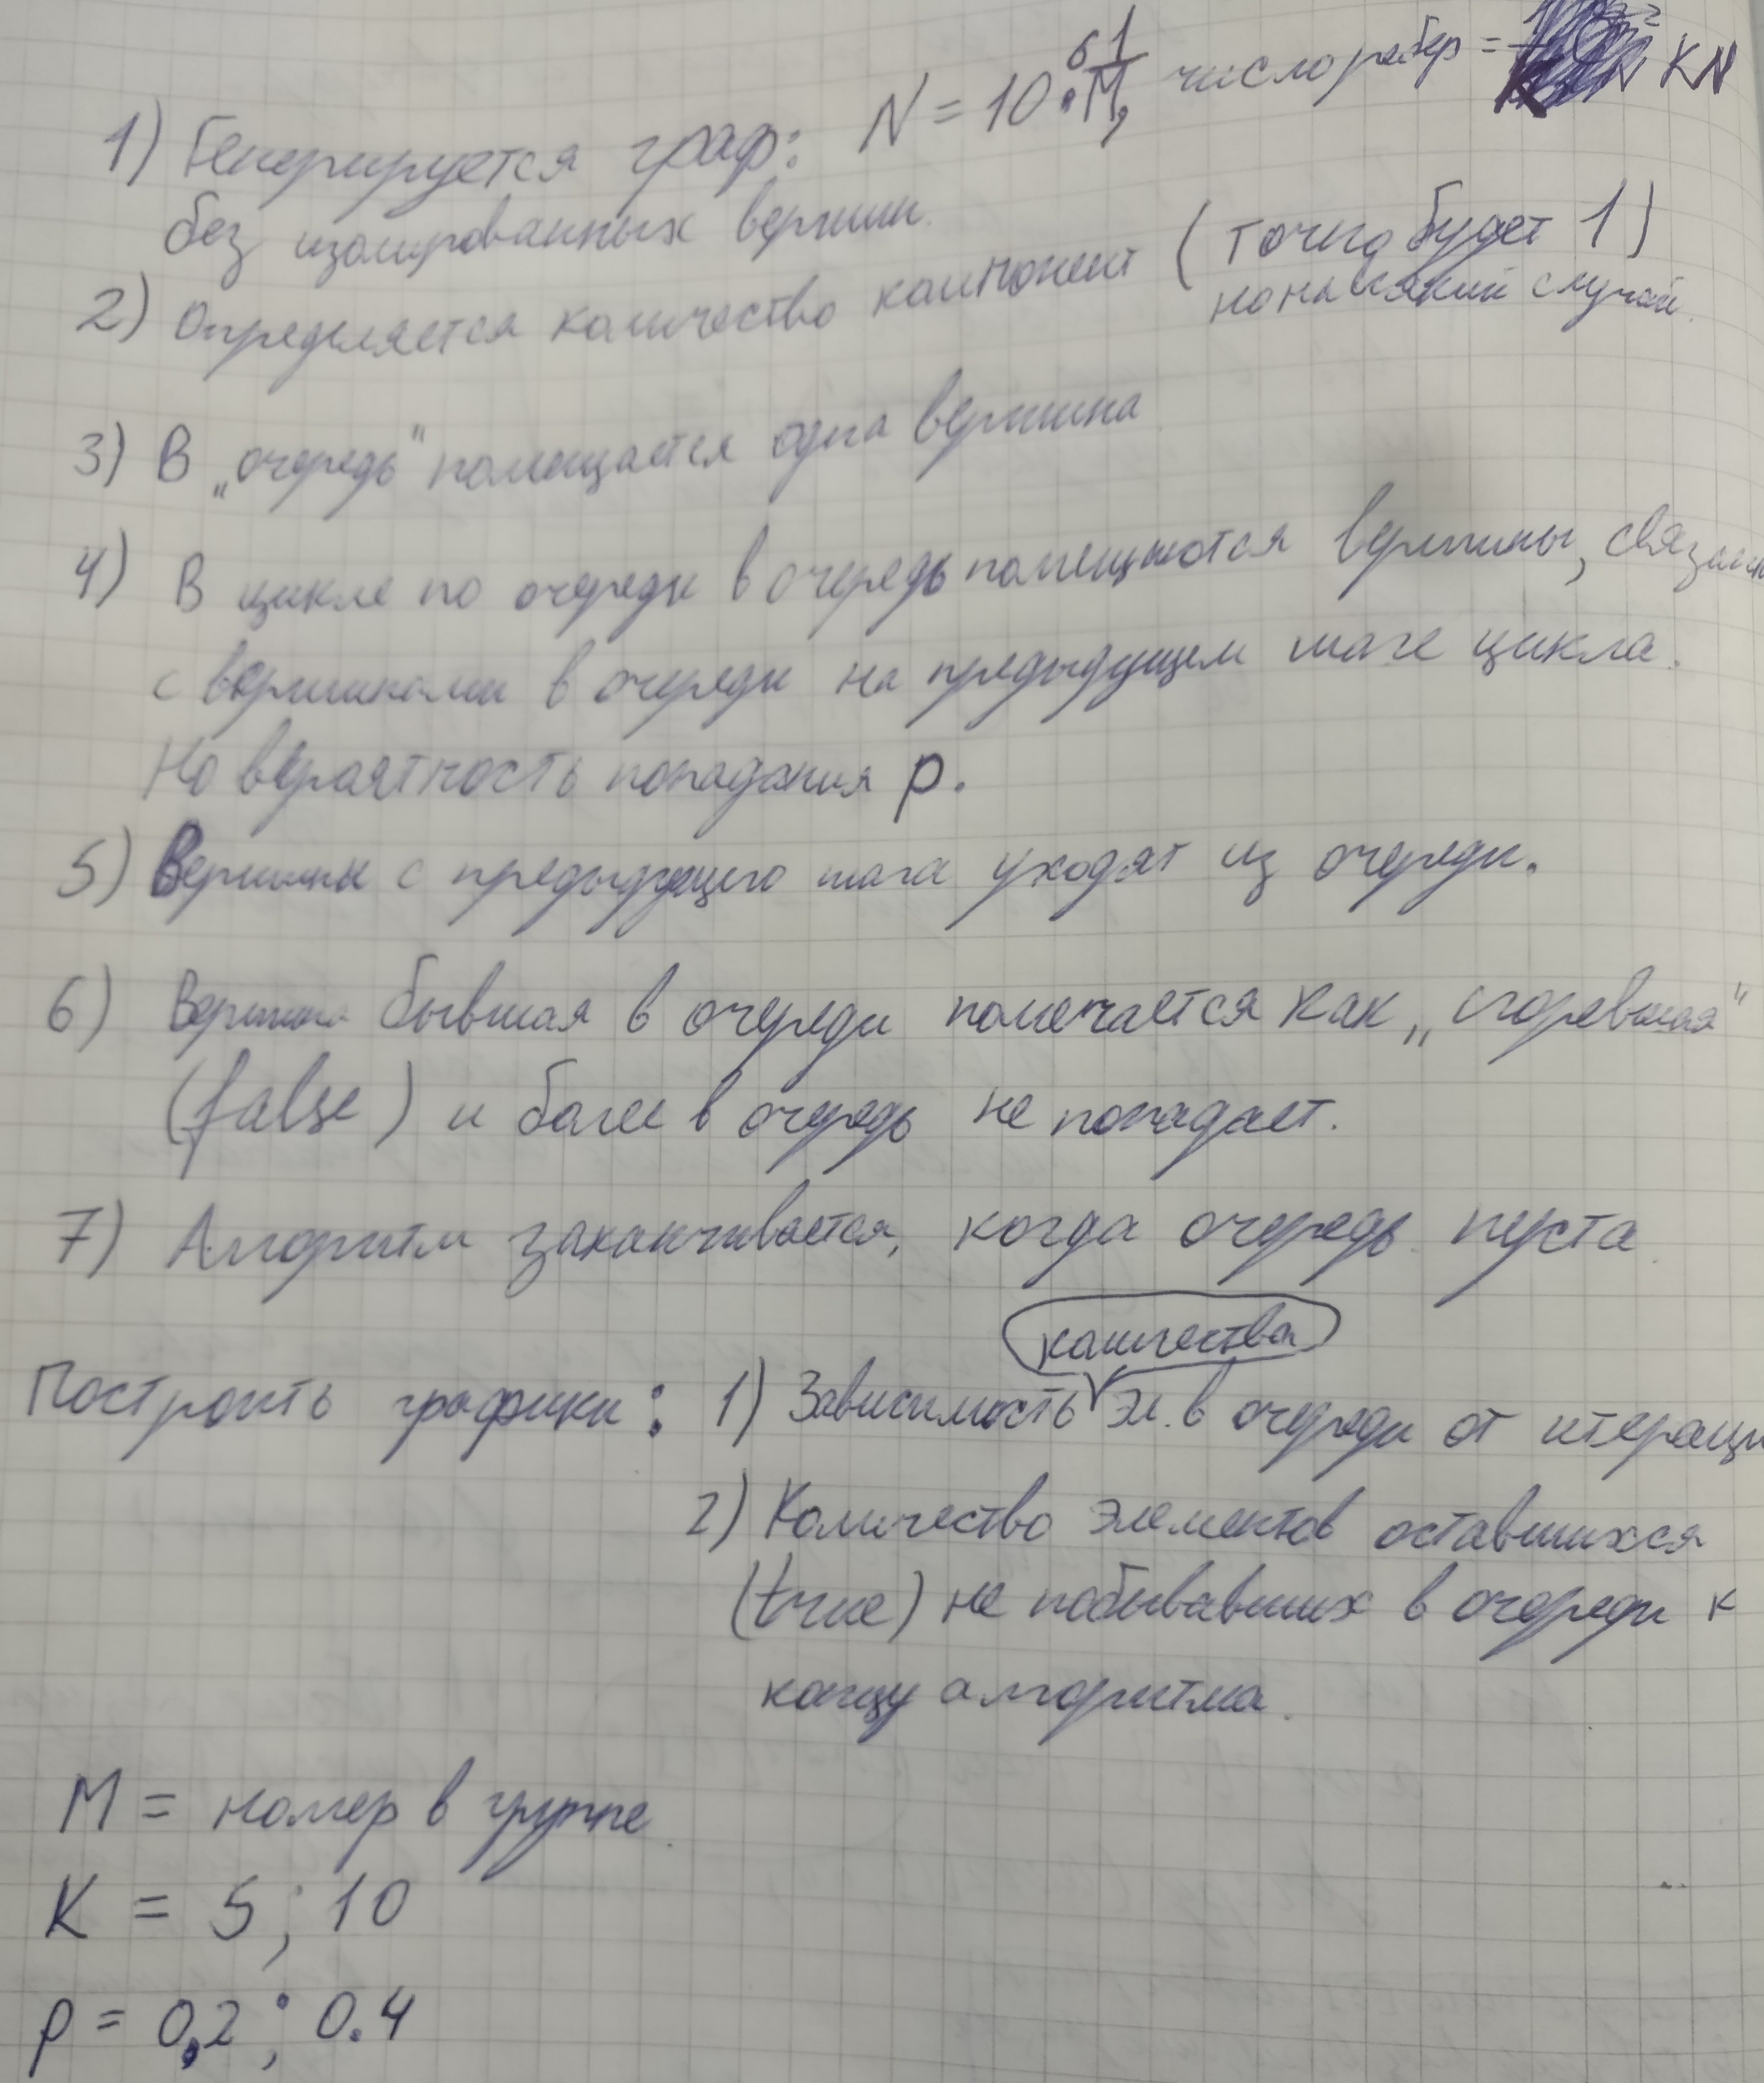 1) Генерируется граф: N = 10⁶·1/M, число ребер = KN
без изолированных вершин.
2) Определяется количество компонент (точно будет 1)
но на всякий случай.
3) В „очередь" помещается одна вершина
4) В цикле по очереди в очередь помещаются вершины,
с вершинами в очереди на предыдущем шаге цикла.
Но вероятность попадания p.
5) Вершины с предыдущего шага уходят из очереди.
6) Вершина бывшая в очереди помечается как „сгоревшая"
(false) и более в очередь не попадает.
7) Алгоритм заканчивается, когда очередь пуста.
количества
Построить графики: 1) Зависимость эл. в очереди от итераци
2) Количество элементов оставшихся
(true) не побывавших в очереди к
концу алгоритма.
M = номер в группе.
K = 5; 10
p = 0,2; 0.4